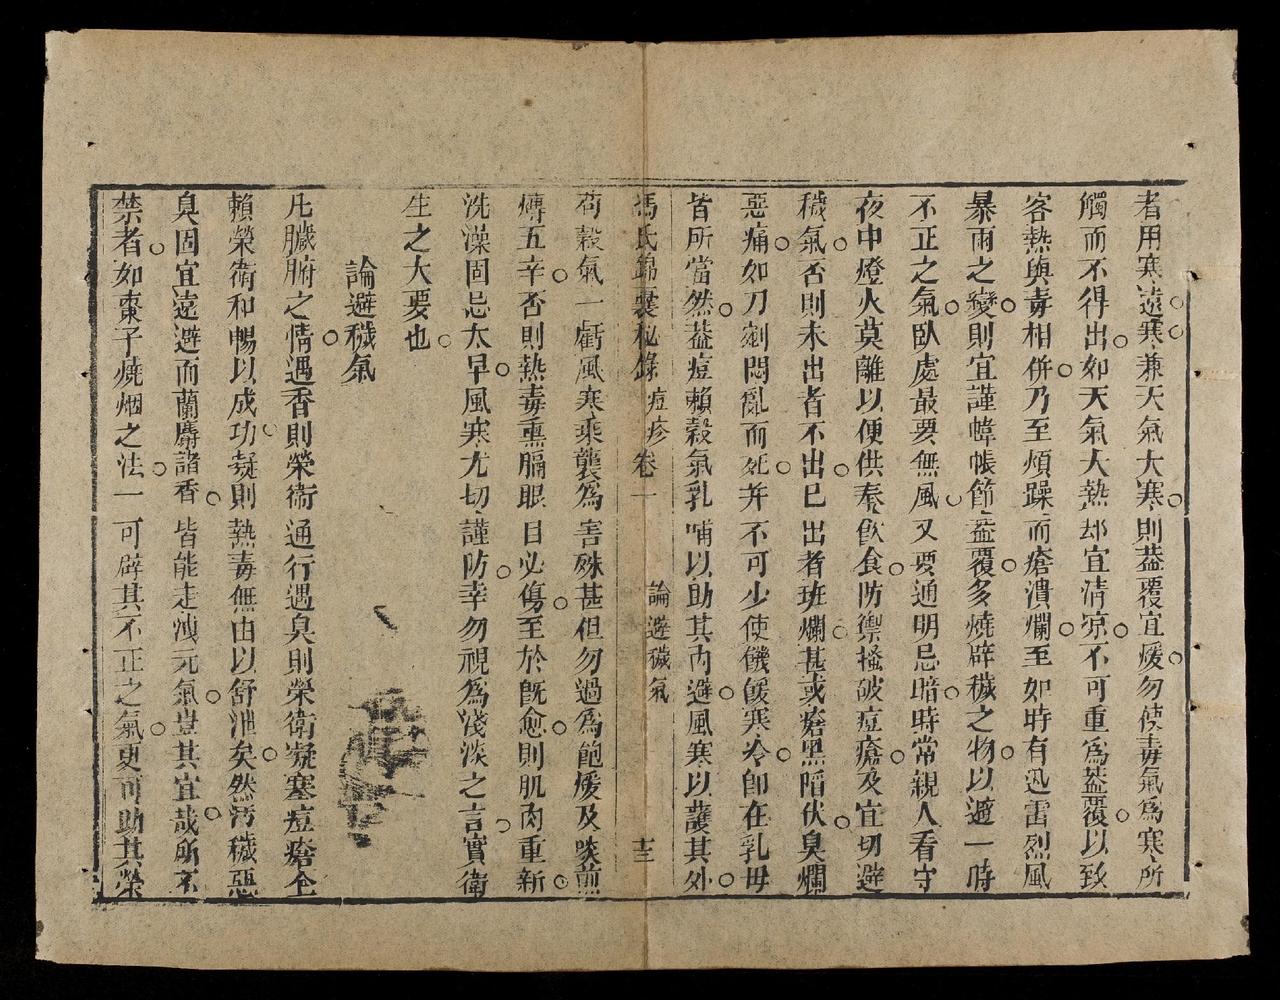 者用寒遠寒兼天氣大寒則蓋覆宜煖勿使毒氣爲寒所
觸而不得出如天氣大熱却宜清凉不可重爲蓋覆以致
客熱與毒相併乃至煩躁而瘡潰爛至如時有迅雷烈風
暴雨之變則宜謹幃帳節蓋覆多燒辟穢之物以遁一時
不正之氣臥處最要無風又要通明忌暗時常親人看守
夜中燈火莫離以便供奉飲食防禦搔破痘瘡及宜切避
穢氣否則未出者不出已出者班爛甚或瘡黑陷伏臭爛
惡痛如刀剜悶亂而死并不可少使饑餒寒冷卽在乳母
皆所當然蓋痘賴穀氣乳哺以助其內避風寒以護其外
馮氏錦囊秘錄 痘疹 卷一 論避穢氣 十三
苟穀氣一虧風寒乘襲爲害殊甚但勿過爲飽煖及啖煎
煿五辛否則熱毒熏膈眼目必傷至於既愈則肌肉重新
洗澡固忌太早風寒尤切謹防幸勿視爲淺淡之言實衛
生之大要也
論避穢氣
凡臟腑之情遇香則榮衞通行遇臭則榮衛凝塞痘瘡全
賴榮衛和暢以成功凝則熱毒無由以舒泄矣然汚穢惡
臭固宜遠避而蘭麝諸香皆能走洩元氣豈其宜哉所不
禁者如棗子燒烟之法一可辟其不正之氣更可助其榮